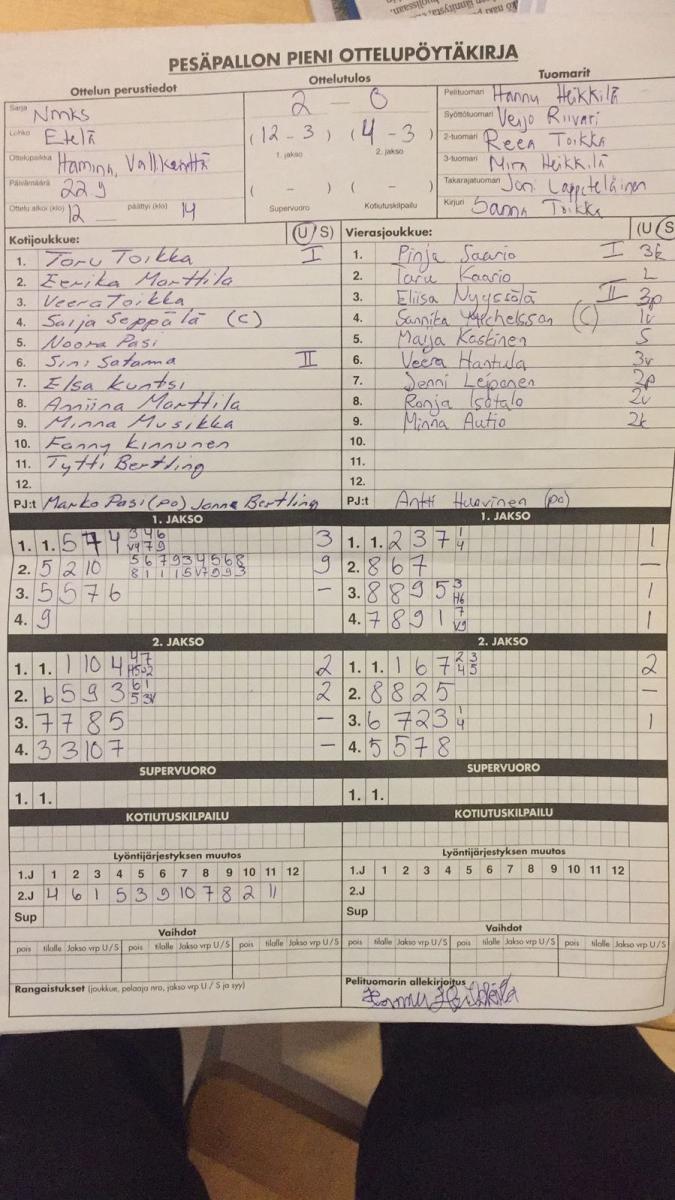 PESÄPALLON PIENI OTTELUPÖYTÄKIRJA
Ottelun perustiedot
Sarja Nmks
Lohko Etelä
Ottelupaikka Hamina,
Päivämäärä 22.9
Ottelu alkoi (klo) 12 päättyi (klo) 14
Ottelutulos
2 - 0
(12 - 3) (4 - 3)
1. jakso 2. jakso
( - ) ( - )
Supervuoro Kotiutuskilpailu
Tuomarit
Pelituomari Hannu Heikkilä
Syöttötuomari Veijo Riivari
2-tuomari Reea Toikka
3-tuomari Mira Heikkilä
Takarajatuomari Joni Lappeteläinen
Kirjuri Sanna Toikka
Kotijoukkue: (U/S)
1. Toru Toikka I
2. Eerika Marttila
3. Veera Toikka
4. Saija Seppälä (C)
5. Noora Pasi
6. Sini Satama II
7. Elsa Kuntsi
8. Anniina Marttila
9. Minna Musikka
10. Fanny Kinnunen
11. Tytti Bertling
12.
PJ:t Marko Pasi (po) Janne Bertling
Vierasjoukkue: (U/S
1. Pinja Saario I 3k
2. Taru Kaario L
3. Eliisa Nyyssölä II 3p
4. Sannika Mechelsson (C) 1v
5. Maija Kaskinen S
6. Veera Hantula 3v
7. Jenni Leponen 2p
8. Ronja Isotalo 2v
9. Minna Autio 2k
10.
11.
12.
PJ:t Antti Huovinen (po)
1. JAKSO
1. 1. 5 7 4 3 4 6 3
V9 7 9
2. 5 2 10 5 6 7 9 3 4 5 6 8 9
8 1 1 1 5 V7 9 9 3
3. 5 5 7 6 –
4. 9
1. JAKSO
1. 1. 2 3 7 1 1
4
2. 8 6 7 —
3. 8 8 9 5 3 1
H6
4. 7 8 9 1 7 1
V9
2. JAKSO
1. 1. 1 10 4 4 7 2
2. 6 5 9 3 6 1 2
3. 7 7 8 5 –
4. 3 3 10 7 –
2. JAKSO
1. 1. 1 6 7 2 3 2
4 5
2. 8 8 2 5 –
3. 6 7 2 3 1 1
4
4. 5 5 7 8
SUPERVUORO
1. 1.
SUPERVUORO
1. 1.
KOTIUTUSKILPAILU
KOTIUTUSKILPAILU
Lyöntijärjestyksen muutos
1.J 1 2 3 4 5 6 7 8 9 10 11 12
2.J 4 6 1 5 3 9 10 7 8 2 11
Sup
Lyöntijärjestyksen muutos
1.J 1 2 3 4 5 6 7 8 9 10 11 12
2.J
Sup
Vaihdot
pois tilalle Jakso vrp U/S pois tilalle Jakso vrp U/S pois tilalle Jakso vrp U/S
Vaihdot
pois tilalle Jakso vrp U/S pois tilalle Jakso vrp U/S pois tilalle Jakso vrp U/S
Rangaistukset (joukkue, pelaaja nro, jakso vrp U / S ja syy)
Pelituomarin allekirjoitus